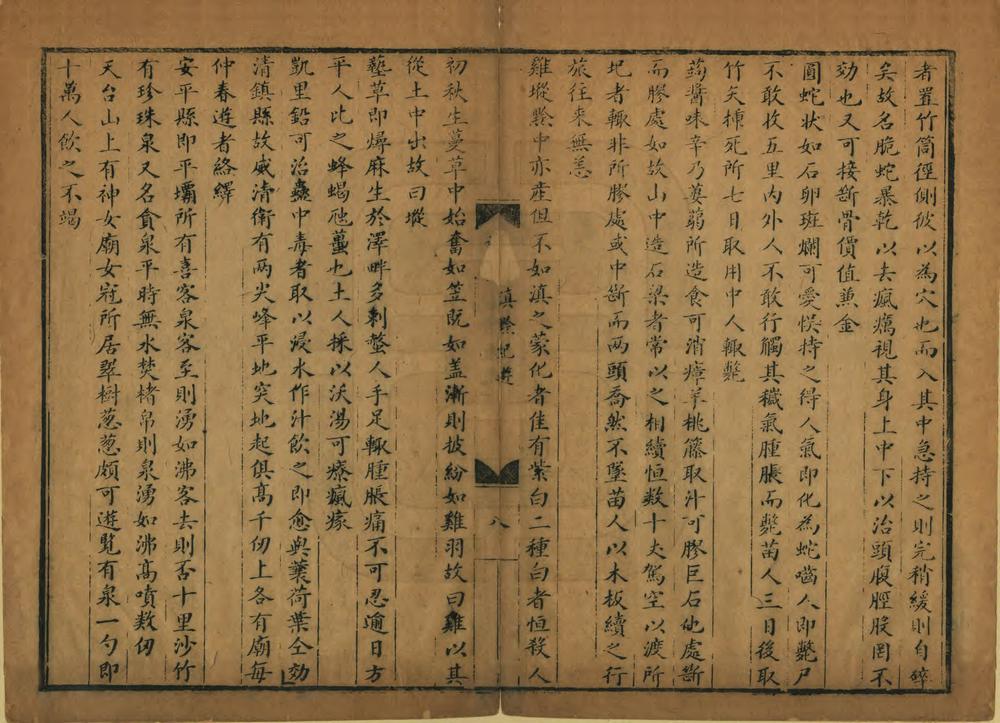 者置竹筒徑側彼以為穴也而入其中急持之則完稍緩則自碎
矣故名脆蛇暴乾以去瘋癘視其身上中下以治頭腹脛股罔不
効也又可接斷骨價值蒹金
圓蛇狀如石卵斑斕可愛悞持之得人氣即化為蛇嚙人即斃尸
不敢收五里內外人不敢行觸其穢氣腫脹而斃苗人三日後取
竹矢揀死所七日取用中人輒斃
蒟醬味辛乃蔞蒻所造食可消瘴羊桃籐取汁可膠巨石他處斷
而膠處如故山中造石梁者常以之相續恒数十丈駕空以渡所
圯者輒非所膠處或中斷而兩頭喬然不墜苗人以木板續之行
旅往来無恙
雞㙡黔中亦産但不如滇之蒙化者佳有紫白二種白者恒殺人
滇黔紀遊
八
初秋生蔓草中始奮如笠既如盖漸則披紛如雞羽故曰雞以其
從土中出故曰㙡
藝草即燖麻生於澤畔多刺螫人手足輒腫脹痛不可忍適日方
平人比之蜂蝎虺蠆也土人採以沃湯可療瘋疾
凱里鉛可治蠱中毒者取以浸水作汁飲之即愈與蘘荷葉仝効
清鎮縣故威清衛有两尖峰平地突地起俱高千仞上各有廟每
仲春遊者絡繹
安平縣即平壩所有喜客泉客至則湧如沸客去則否十里沙竹
有珍珠泉又名貪泉平時無水焚楮帛則泉湧如沸高噴数仞
天台山上有神女廟女冠所居翠樹葱葱頗可遊覧有泉一勺即
十萬人飲之不竭